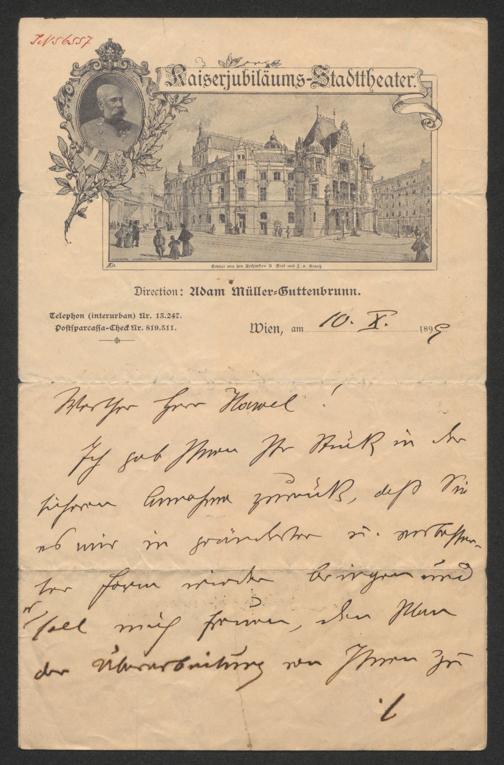 I.N. 56557
Kaiserjubiläums-Stadttheater.
Direction: Adam Müller-Guttenbrunn.
Telephon (interurban) Nr. 13.247.
Postsparcassa-Check Nr. 819.511.
Wien, am 10. X. 1899
Werther Herr Hawel!
Ich gab Ihnen Ihr Stück in der
sicheren Annahme zurück, daß Sie
es mir in geänderter u. verbesser-
ter Form wieder bringen und
soll mich freuen, den Plan
der Überarbeitung von Ihnen zu